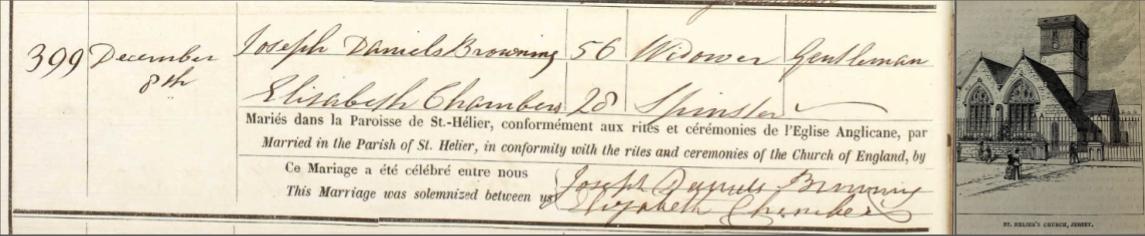 399 December 8th Joseph Daniels Browning 56 Widower Gentleman
Elisabeth Chambers 28 Spinster
Mariés dans la Paroisse de St.-Hélier, conformément aux rites et cérémonies de l'Eglise Anglicane, par
Married in the Parish of St. Helier, in conformity with the rites and ceremonies of the Church of England, by
Ce Mariage a été célébré entre nous
This Marriage was solemnized between us
Joseph Daniels Browning
Elizabeth Chambers
ST. HELIER'S CHURCH, JERSEY.